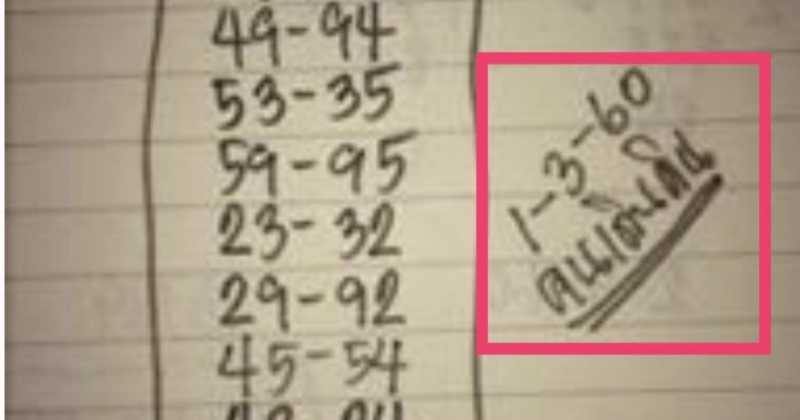 49-94
53-35
59-95
23-32
29-92
45-54
1-3-60
คนเดินดิน